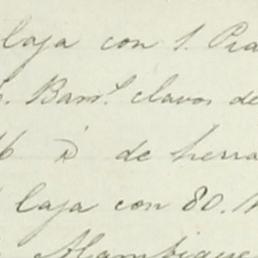 laja con 1. Pia
Barrl. clavos de
id de herra
laja con 80.
Alambique